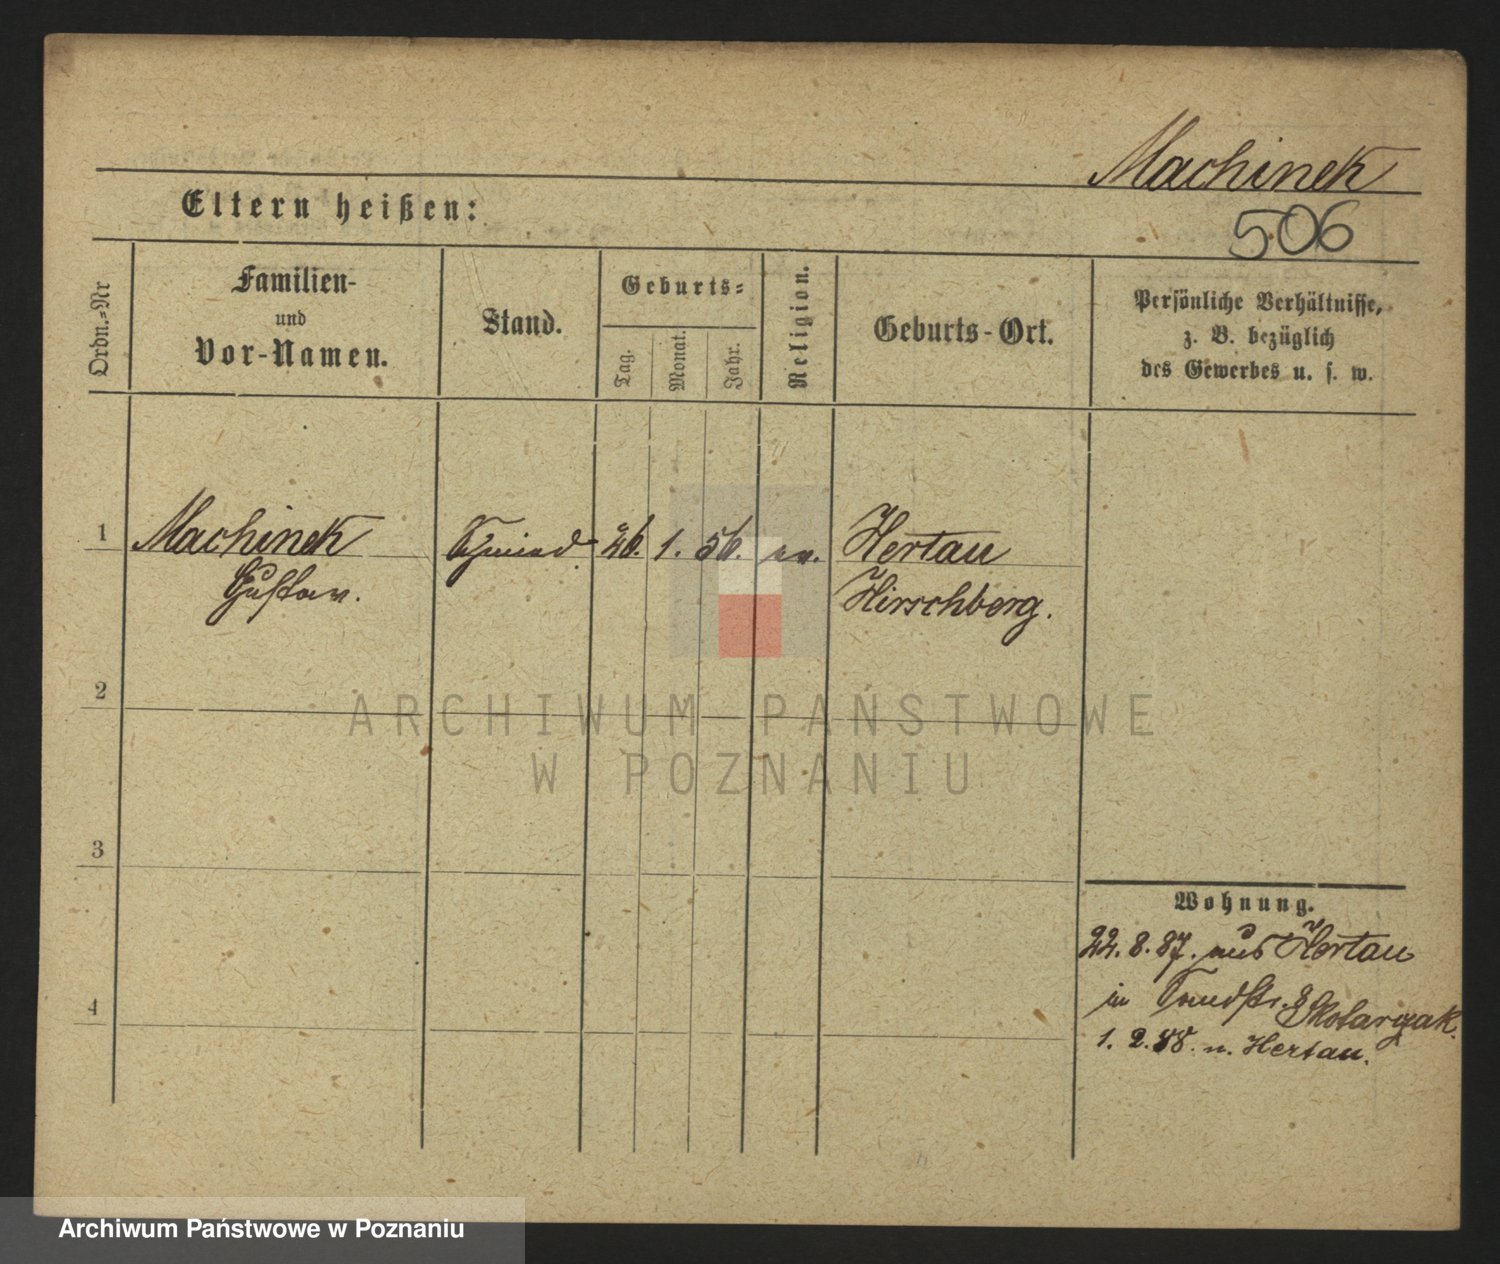 Machinek
506
Eltern heißen:
Ordn.=Nr
Familien-
und
Vor-Namen.
Stand.
Geburts=
Tag.
Monat.
Jahr.
Religion.
Geburts-Ort.
Persönliche Verhältnisse,
z. B. bezüglich
des Gewerbes u. s. w.
1
Machinek
Gustav.
Schmied
26. 1. 56.
ev.
Hertau
Hirschberg.
2
3
4
ARCHIWUM PAŃSTWOWE
W POZNANIU
Wohnung.
22. 8. 87. aus Hertau
in Sandstr. 8
Skotarczak.
1. 2. 88. n. Hertau.
Archiwum Państwowe w Poznaniu